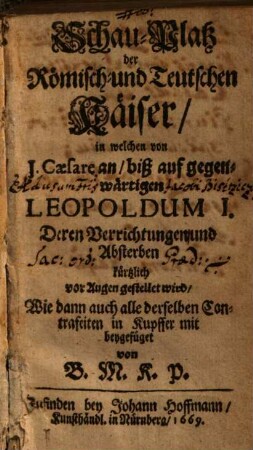 Schau-Platz
der
Römisch-und Teutschen
Käiser/
in welchen von
J. Cæsare an/ biß auf gegen-
wärtigen
LEOPOLDUM I.
Deren Verrichtungen und
Absterben
kürtzlich
vor Augen gestellet wird/
Wie dann auch alle derselben Con-
trafeiten in Kupffer mit
beygefüget
von
B. M. K. P.
Zufinden bey Johann Hoffmann/
Kunsthändl. in Nürnberg/ 1669.